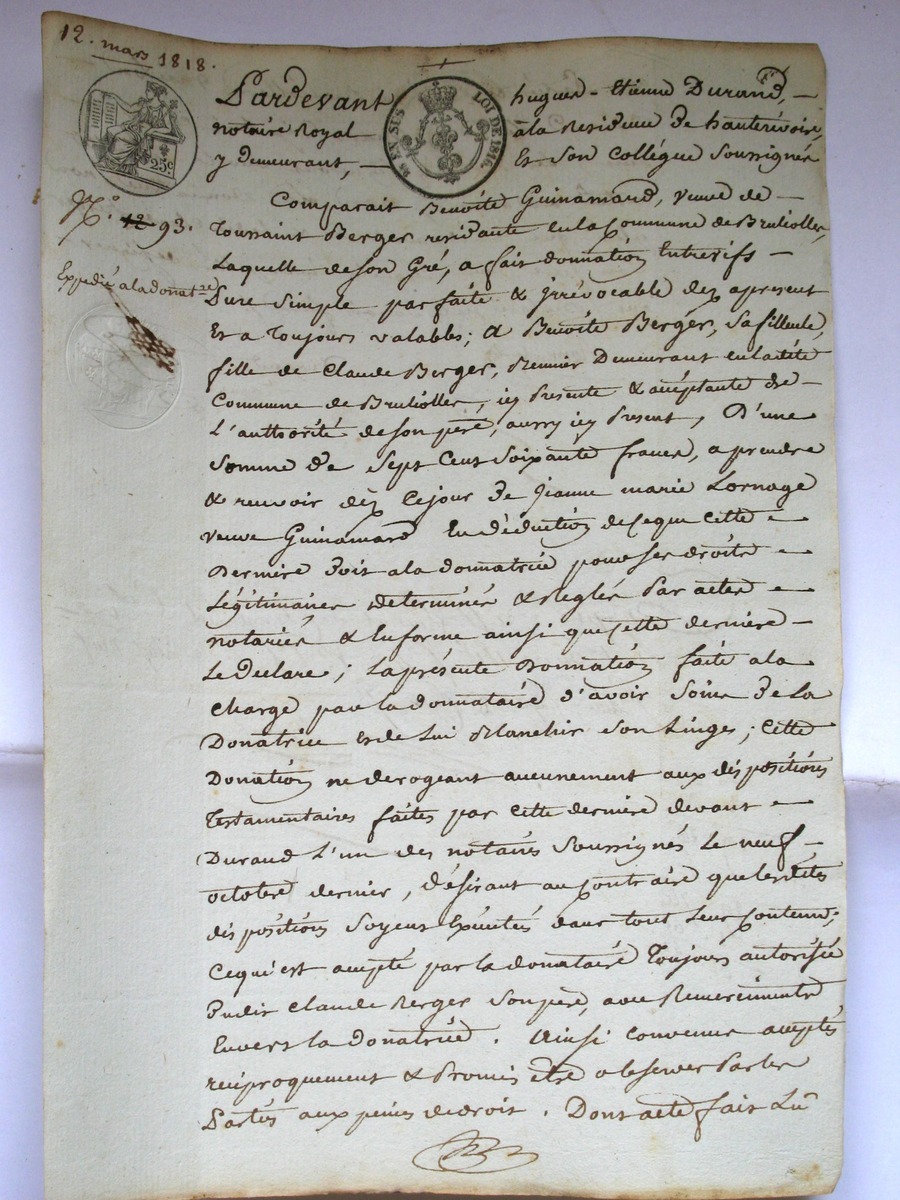 12. mars 1818.
Pardevant hugues - Etienne Durand, -
notaire Royal a la Residence de hauterivoire,
y demeurant, - Et Son Collégue Soussignés
25c.
LOI DE 1816.
EN SUS
Comparait Benoite Guinamard, veuve de
N.° 12 93.
Toussaint Berger residante en la Commune de Brulliolles,
Laquelle de son Gré, a fait donnation Entrevifs -
Expedié a la donat.re
Pure Simple parfaite & irrévocable dez apresent
Et a Toujours valables; a Benoite Berger, sa filleule,
fille de Claude Berger, Demeurant en la dite
Commune de Brulliolles, icy Presente & acceptante de -
L'authorité de son pere, aussy icy Present, D'une
Somme de Sept Cent Soixante francs, a prendre
& recevoir déz Cejour de Jeanne marie Lornage
veuve Guinamard En déduction de ce que Cette -
Derniere doit a la donnatrice pour ses droits -
Légitimaires determinés & Reglés Par actes -
notariés & En forme ainsi que cette derniere -
Le Declare; La présente Donnation faite a la
Charge par la donnataire d'avoir Soins de La
Donatrice et de Lui Blanchir Son Linge; Cette
Donation ne derogeant aucunement aux dispositions
Testamentaires faites par Cette derniere devant -
Durand L'un des notaires Soussignés Le neuf -
octobre dernier, désirant au Contraire que lesdites
dispositions Soyent Exécutés dans tout Leur Contenu;
Cequi est accepté par la donataire Toujours autorisée
Dudit Claude Berger Son pere, avec Remerciments
Envers la donatrice. Ainsi convenu acceptés
reciproquement & Promis etre observer Par les
Parties aux peines de droit. Dont acte fait Lu